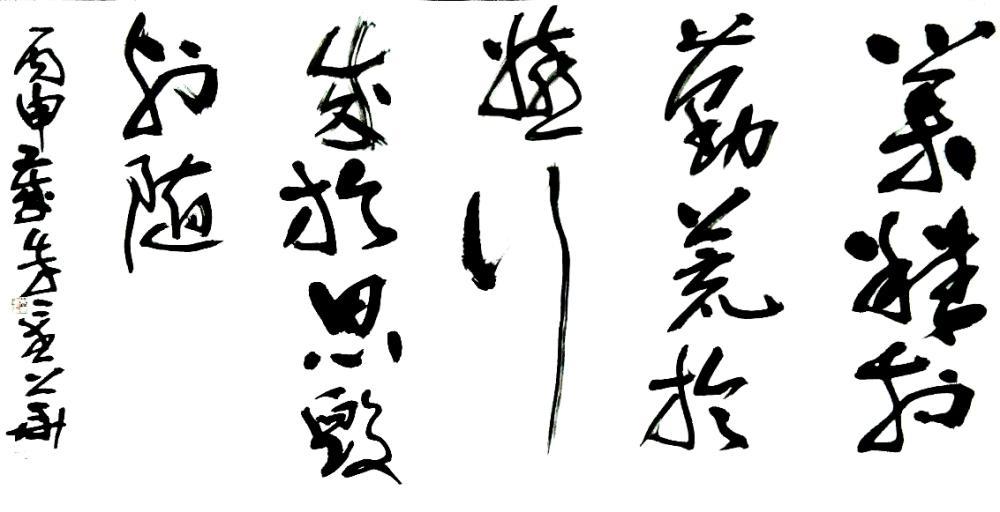 業精於
勤荒於
嬉行
成於思毁
於随
丙申